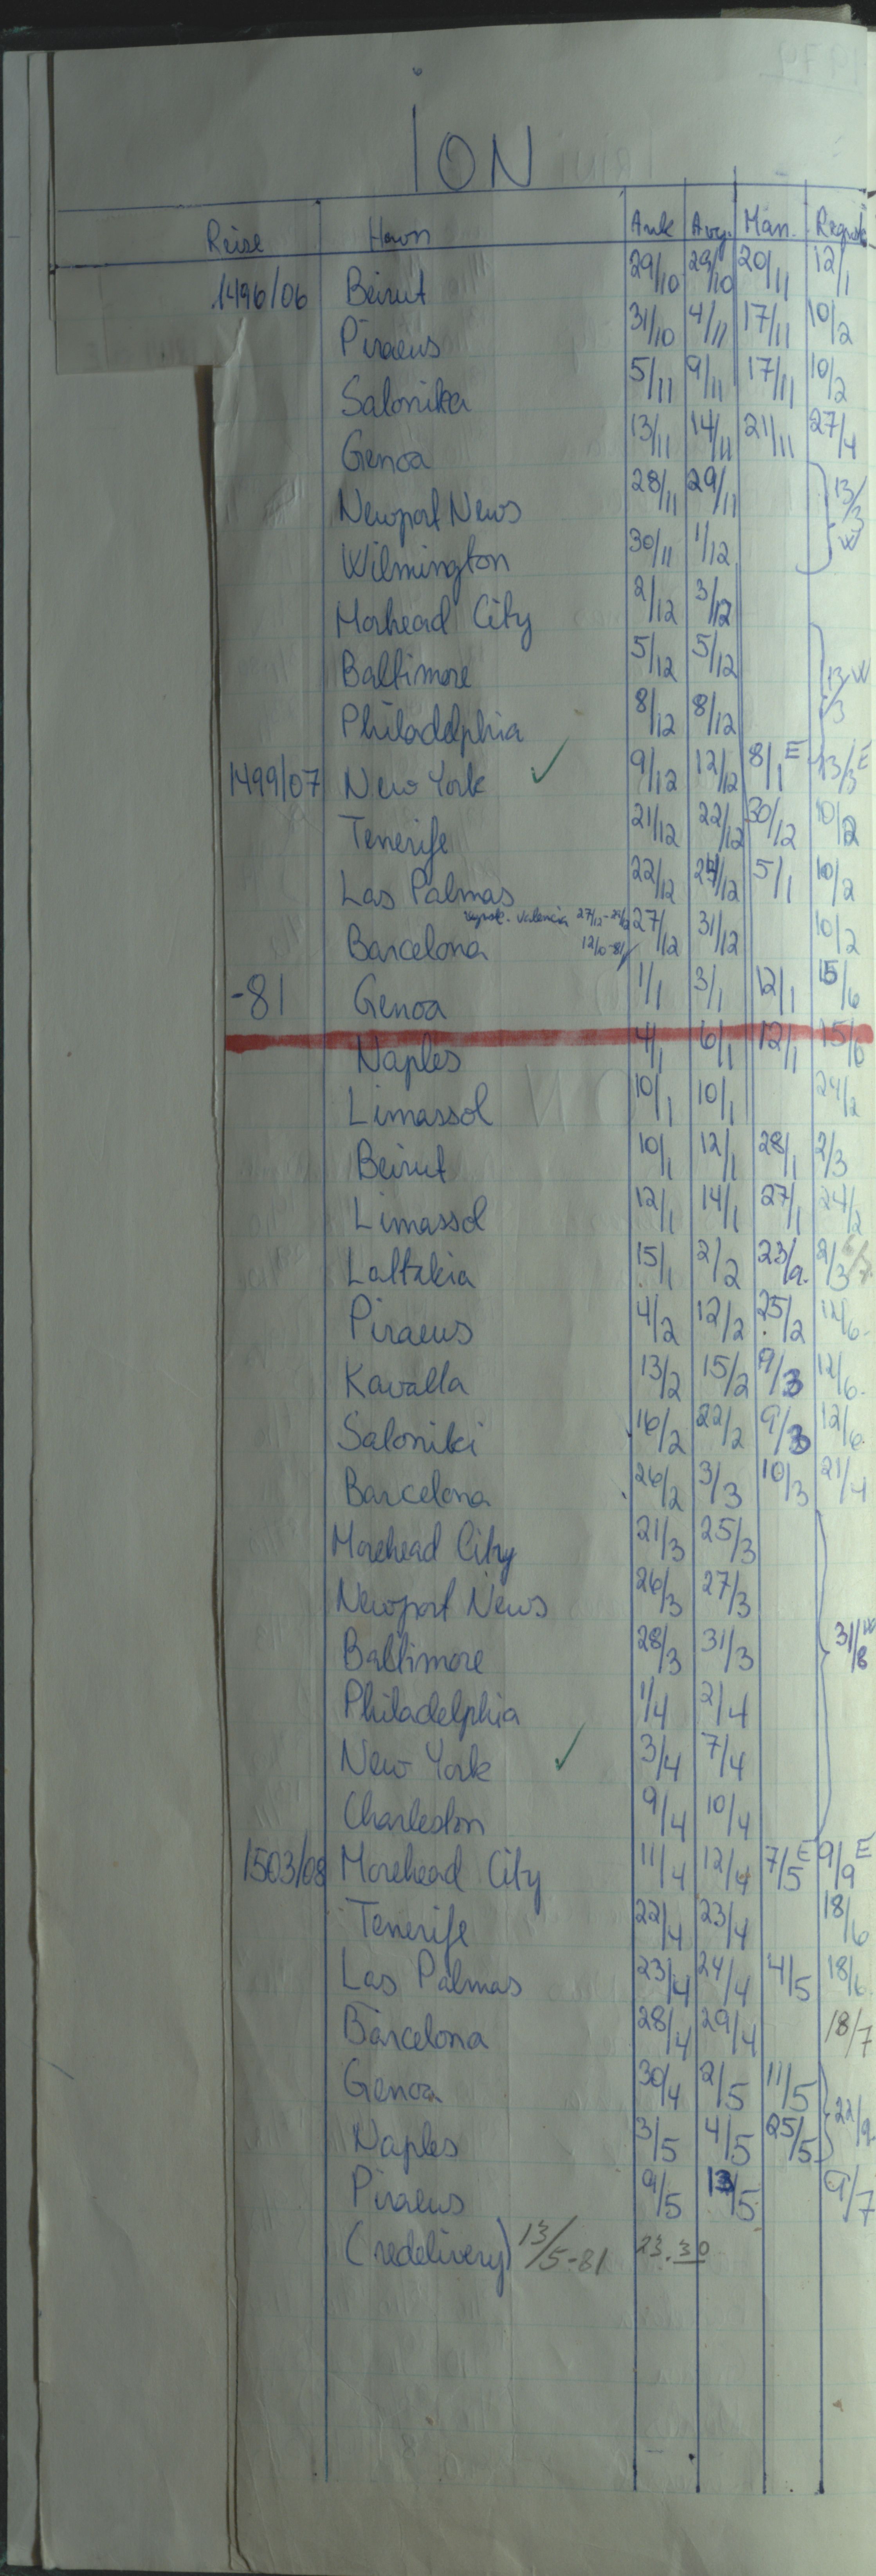 ION
Reise Havn Ank Avg. Man. Regnsk.
1496/06 Beirut 29/10 29/10 20/11 12/1
Piraeus 31/10 4/11 17/11 10/2
Salonika 5/11 9/11 17/11 10/2
Genoa 13/11 14/11 21/11 27/4
Newport News 28/11 29/11 13/3 W
Wilmington 30/11 1/12
Morhead City 2/12 3/12
Baltimore 5/12 5/12 13/3 W
Philadelphia 8/12 8/12
1499/07 New York ✓ 9/12 12/12 8/1 E 13/3 E
Tenerife 21/12 22/12 30/12 10/2
Las Palmas 22/12 24/12 5/1 10/2
regnsk. Valencia 27/12
Barcelona 27/12 31/12 10/2
-81 Genoa 1/1 3/1 12/1 15/6
Naples 4/1 6/1 12/1 15/6
Limassol 10/1 10/1 24/2
Beirut 10/1 12/1 28/1 2/3
Limassol 12/1 14/1 27/1 24/2
Lattakia 15/1 2/2 23/2 2/3
Piraeus 4/2 12/2 25/2 12/6
Kavalla 13/2 15/2 9/3 12/6
Saloniki 16/2 22/2 9/3 12/6
Barcelona 26/2 3/3 10/3 21/4
Morehead City 21/3 25/3
Newport News 26/3 27/3
Baltimore 28/3 31/3 31/8 W
Philadelphia 1/4 2/4
New York ✓ 3/4 7/4
Charleston 9/4 10/4
1503/08 Morehead City 11/4 12/4 7/5 E 9/9 E
Tenerife 22/4 23/4 18/6
Las Palmas 23/4 24/4 4/5 18/6
Barcelona 28/4 29/4 18/7
Genoa 30/4 2/5 11/5 22/9
Naples 3/5 4/5 25/5
Piraeus 9/5 13/5 9/7
(redelivery) 13/5-81 23.30